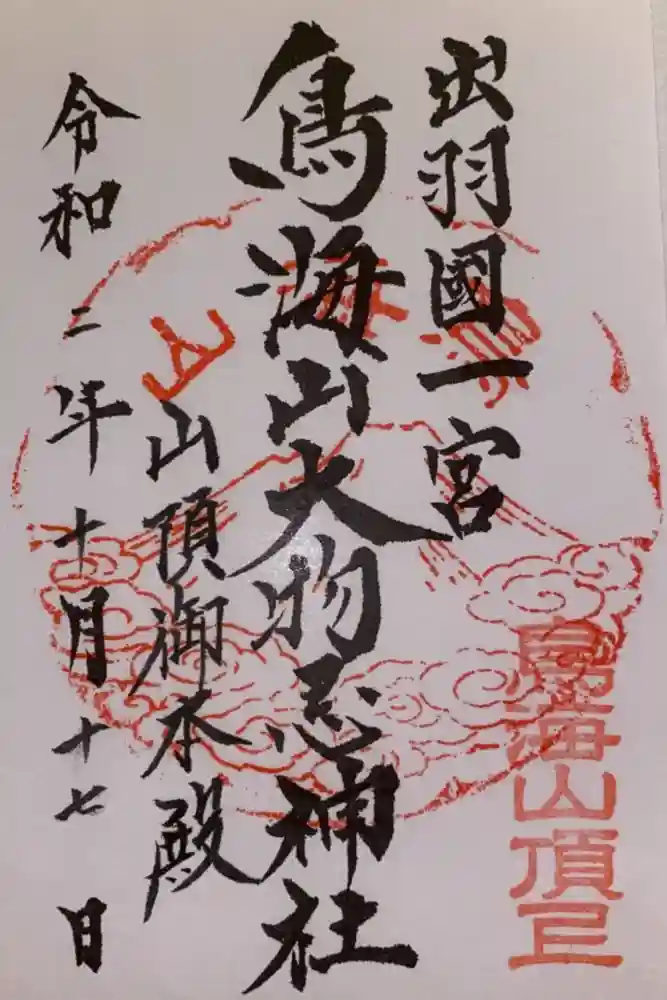 出羽國一宮
鳥海山大物忌神社
山頂御本殿
令和二年十月十七日
鳥海山頂